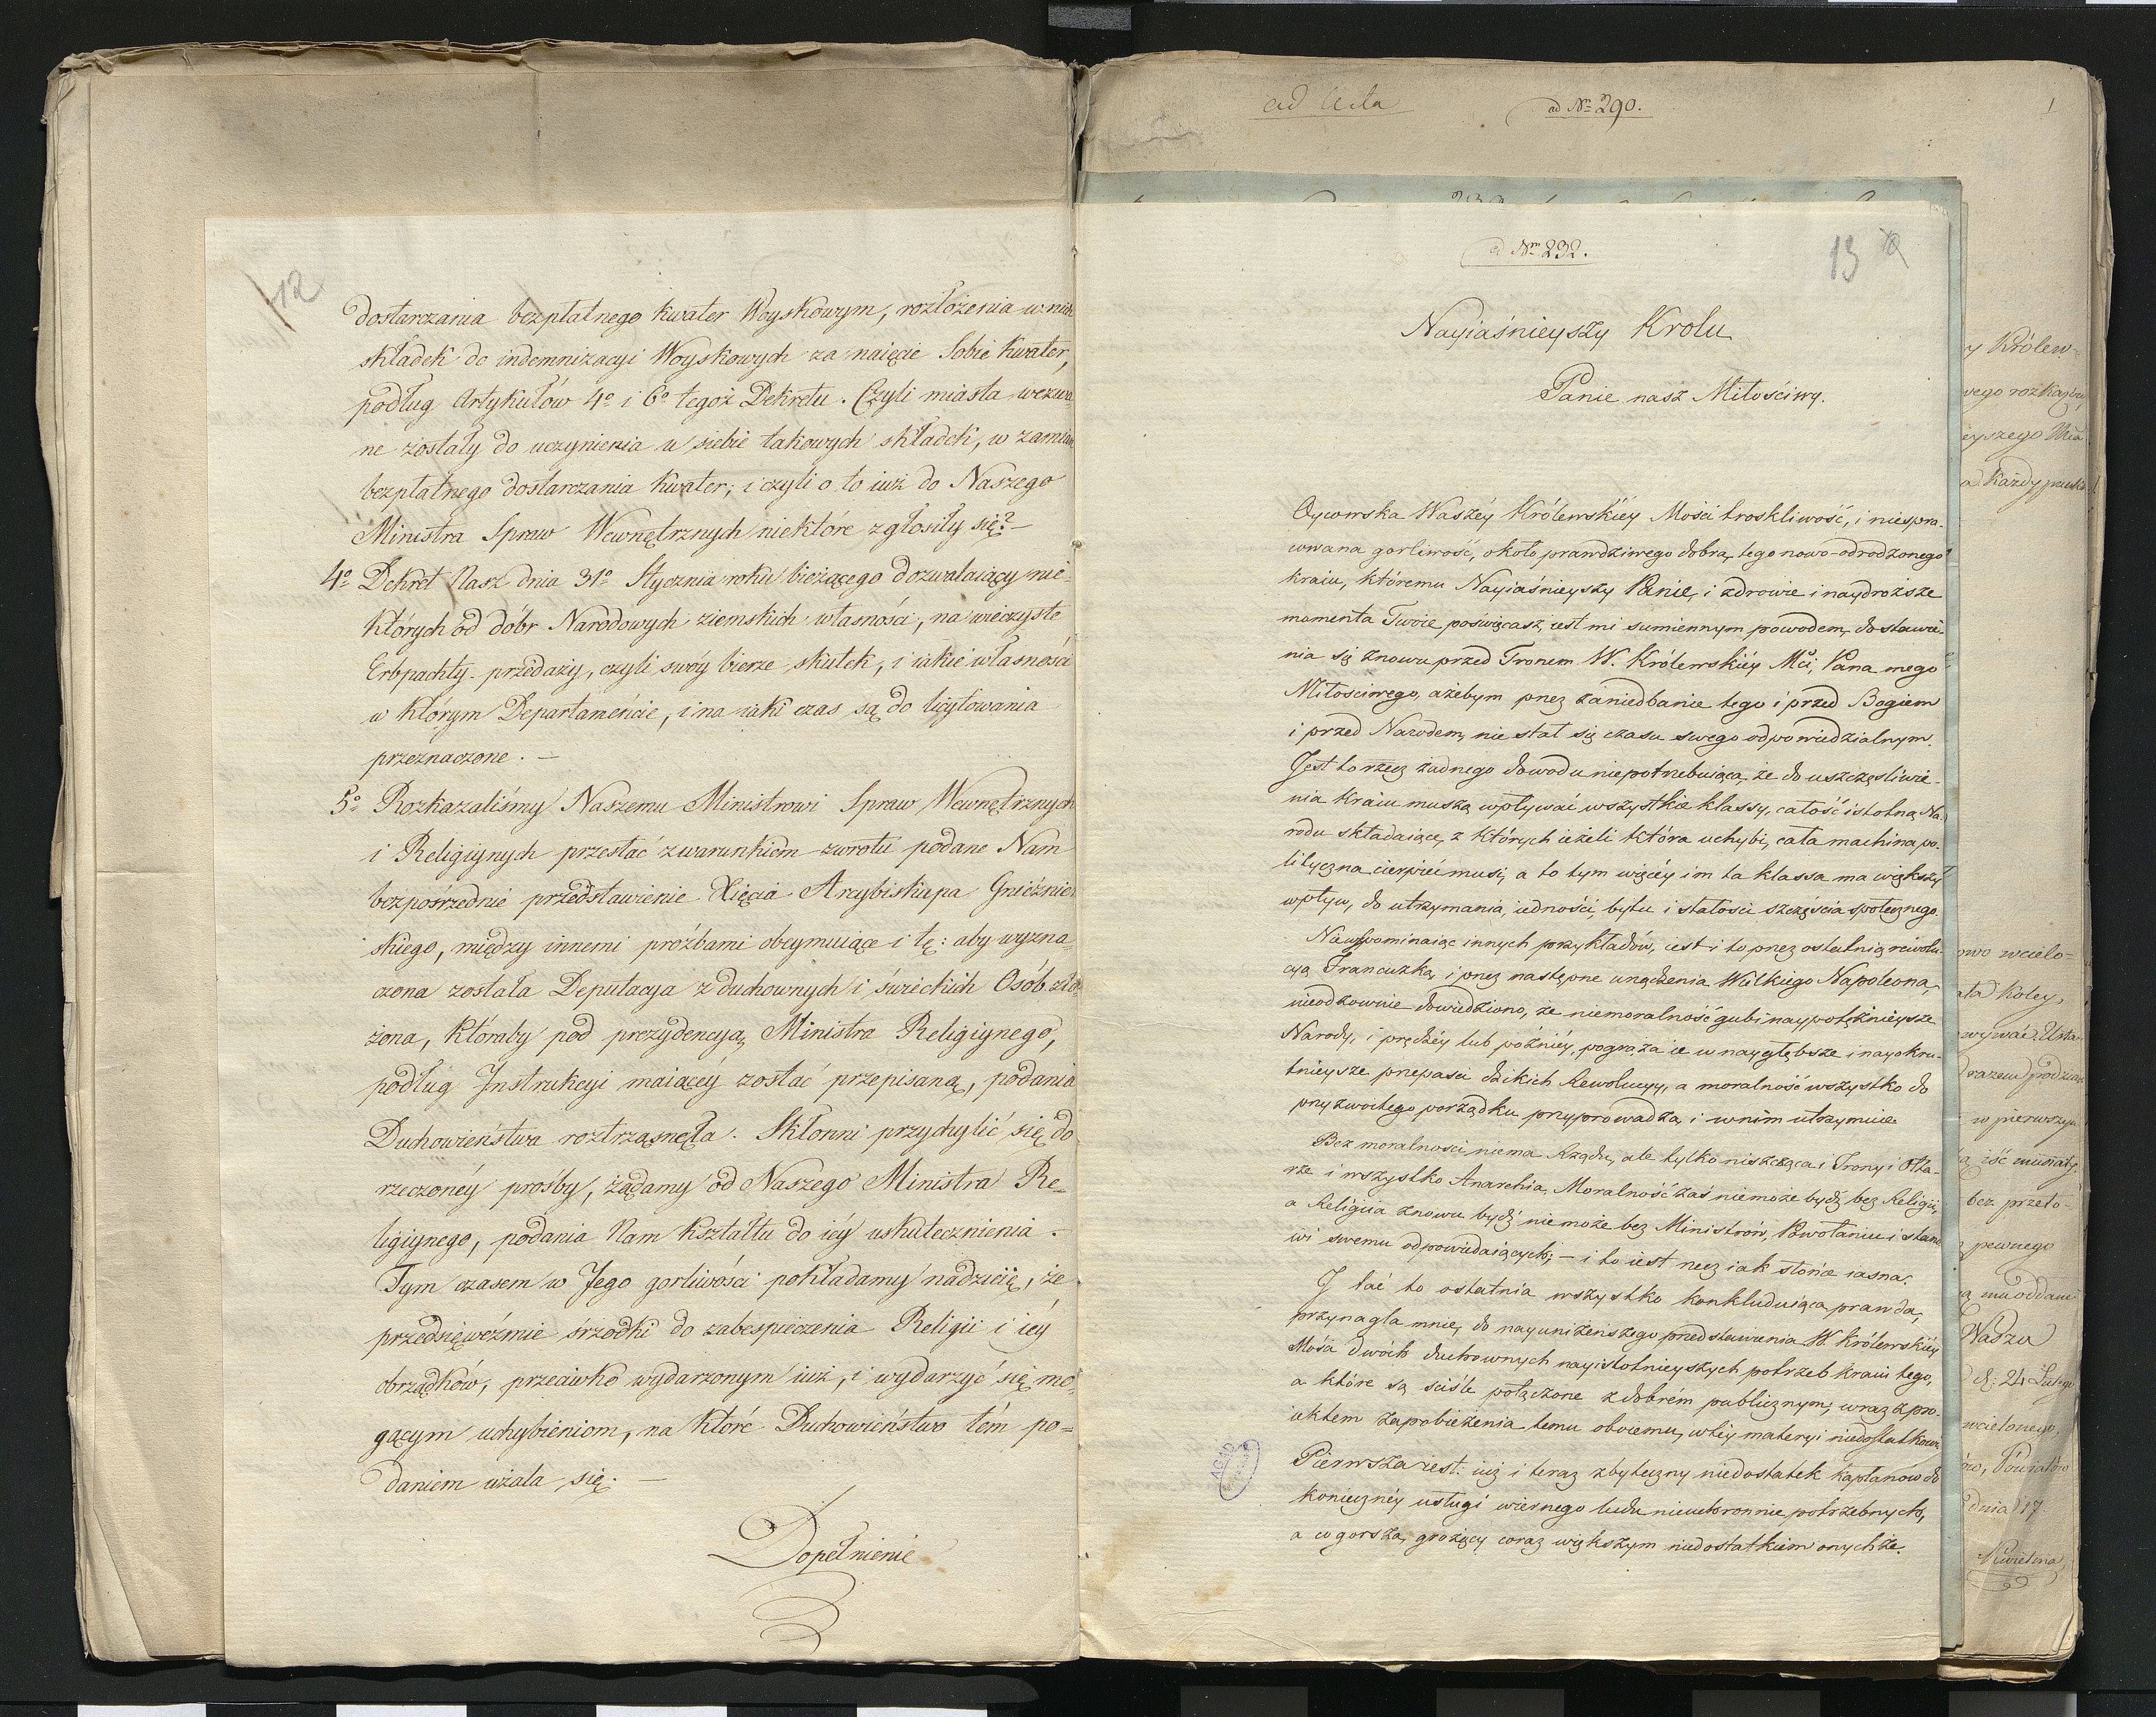 12
dostarczania bezpłatnego kwater Woyskowym, rozłożenia w nich
składek do indemnizacyi Woyskowych za naięcie sobie kwater,
podług Artykułów 4º i 6º tegoż Dekretu. Czyli miasta wezwa-
ne zostały do uczynienia u siebie takowych składek, w zamian
bezpłatnego dostarczania kwater; i czyli o to iuż do Naszego
Ministra Spraw Wewnętrznych niektóre zgłosiły się? —
4º Dekret Nasz dnia 31º Stycznia roku bieżącego dozwalaiący nie-
których od dóbr Narodowych ziemskich własności, na wieczyste
Erbpachty przedaży, czyli swóy bierze skutek, i iakie własności
w którym Departamencie, i na iaki czas są do licytowania
przeznaczone. —
5º Rozkazaliśmy Naszemu Ministrowi Spraw Wewnętrznych
i Religiynych przesłać z warunkiem zwrotu podane Nam
bezpośrzednie przedstawienie Xięcia Arcybiskupa Gnieźnień
skiego, między innemi prożbami obeymuiące i tę: aby wyzna-
czona została Deputacya z duchownych i świeckich Osób zło-
żona, któraby pod prezydencyą Ministra Religiynego,
podług Instrukcyi maiącéy zostać przepisaną, podania
Duchowieństwa roztrząsnęła. Skłonni przychylić się do
rzeczonéy prośby, żądamy od Naszego Ministra Re-
ligiynego, podania Nam kształtu do iéy uskutecznienia. —
Tym czasem w Jego gorliwości pokładamy nadzieię, że
przedsięweźmie śrzodki do zabespieczenia Religii i iéy
obrządków, przeciwko wydarzonym iuż, i wydarzyć się mo-
gącym uchybieniom, na które Duchowieństwo tém po=
daniem użala się. —
Dopełnienie
ad Acta
ad Nº 290.
1
ad Nº 232.
13
Nayiaśnieyszy Krolu
Panie nasz Miłościwy.
Oycowska Waszéy Królewskiéy Mości troskliwość, i niespra-
cowana gorliwość, około prawdziwego dobra, tego nowo-odrodzonego
kraiu, któremu Nayiaśnieyszy Panie, i zdrowie i naydroższe
momenta Twoie poświęcasz, iest mi sumiennym powodem, do stawie-
nia się znowu przed Tronem W. Królewskiéy Mći, Pana mego
Miłościwego, ażebym przez zaniedbanie tego i przed Bogiem
i przed Narodem, nie stał się czasu swego odpowiedzialnym.
Jest to rzecz żadnego dowodu niepotrzebuiąca, że do uszczęśliwie-
nia Kraiu muszą wpływać wszystkie klassy, całość istotną Na-
rodu składaiące, z których ieżeli która uchybi, cała machina po-
lityczna cierpieć musi, a to tym więcéy im ta klassa ma większy
wpływ, do utrzymania, iedności, bytu i stałości szczęścia społecznego.
Niewspominaiąc innych przykładów, iest i to przez ostatnią rewolu-
cyą Francuzką, i przez następne urządzenia Wielkiego Napoleona,
nieodzownie dowiedziono, że niemoralność gubi naypotężnieysze
Narody, i prędzéy lub późniéy, pogrąża ie w naygłębsze i nayokru-
tnieysze przepaści dzikich Rewolucyy, a moralność wszystko do
przyzwoitego porządku przyprowadza, i w nim utrzymuie.
Bez moralności niema Rządu, ale tylko niszcząca i Trony i Ołta-
rze i wszystko Anarchia. Moralność zaś niemoże bydź bez Religii,
a Religiia znowu bydź niemoże bez Ministrów, Powołaniu i stano
wi swemu odpowiadaiących; — i to iest rzecz iak słońce iasna.
I tać to ostatnia wszystko konkluduiąca prawda,
przynagla mnie, do nayuniżeńszego przedstawienia W. Królewskiéy
Mości dwóch duchownych nayistotnieyszych potrzeb kraiu tego,
a które są ściśle połączone z dobrém publicznym; wraz z pro-
iektem zapobieżenia temu oboiemu, w téy materyi niedostatkowi.
Pierwsza iest: iuż i teraz zbyteczny niedostatek kapłanów do
konieczney usługi wiernego ludu nieuchronnie potrzebnych,
a co gorsza, grożący coraz większym niedostatkiem onychże.
y Królew=
wego rozkazu
eyszego
a każdy
owo wcielo=
ata koley,
wywać Usta
razem
w pierwszym
ią iść musiały
bez przeło=
pewnego
ą mu oddane
Wasza
d: 24 Lutego
wcielonego,
ów, Powiatów
dnia 17
Kwietnia
AGAD